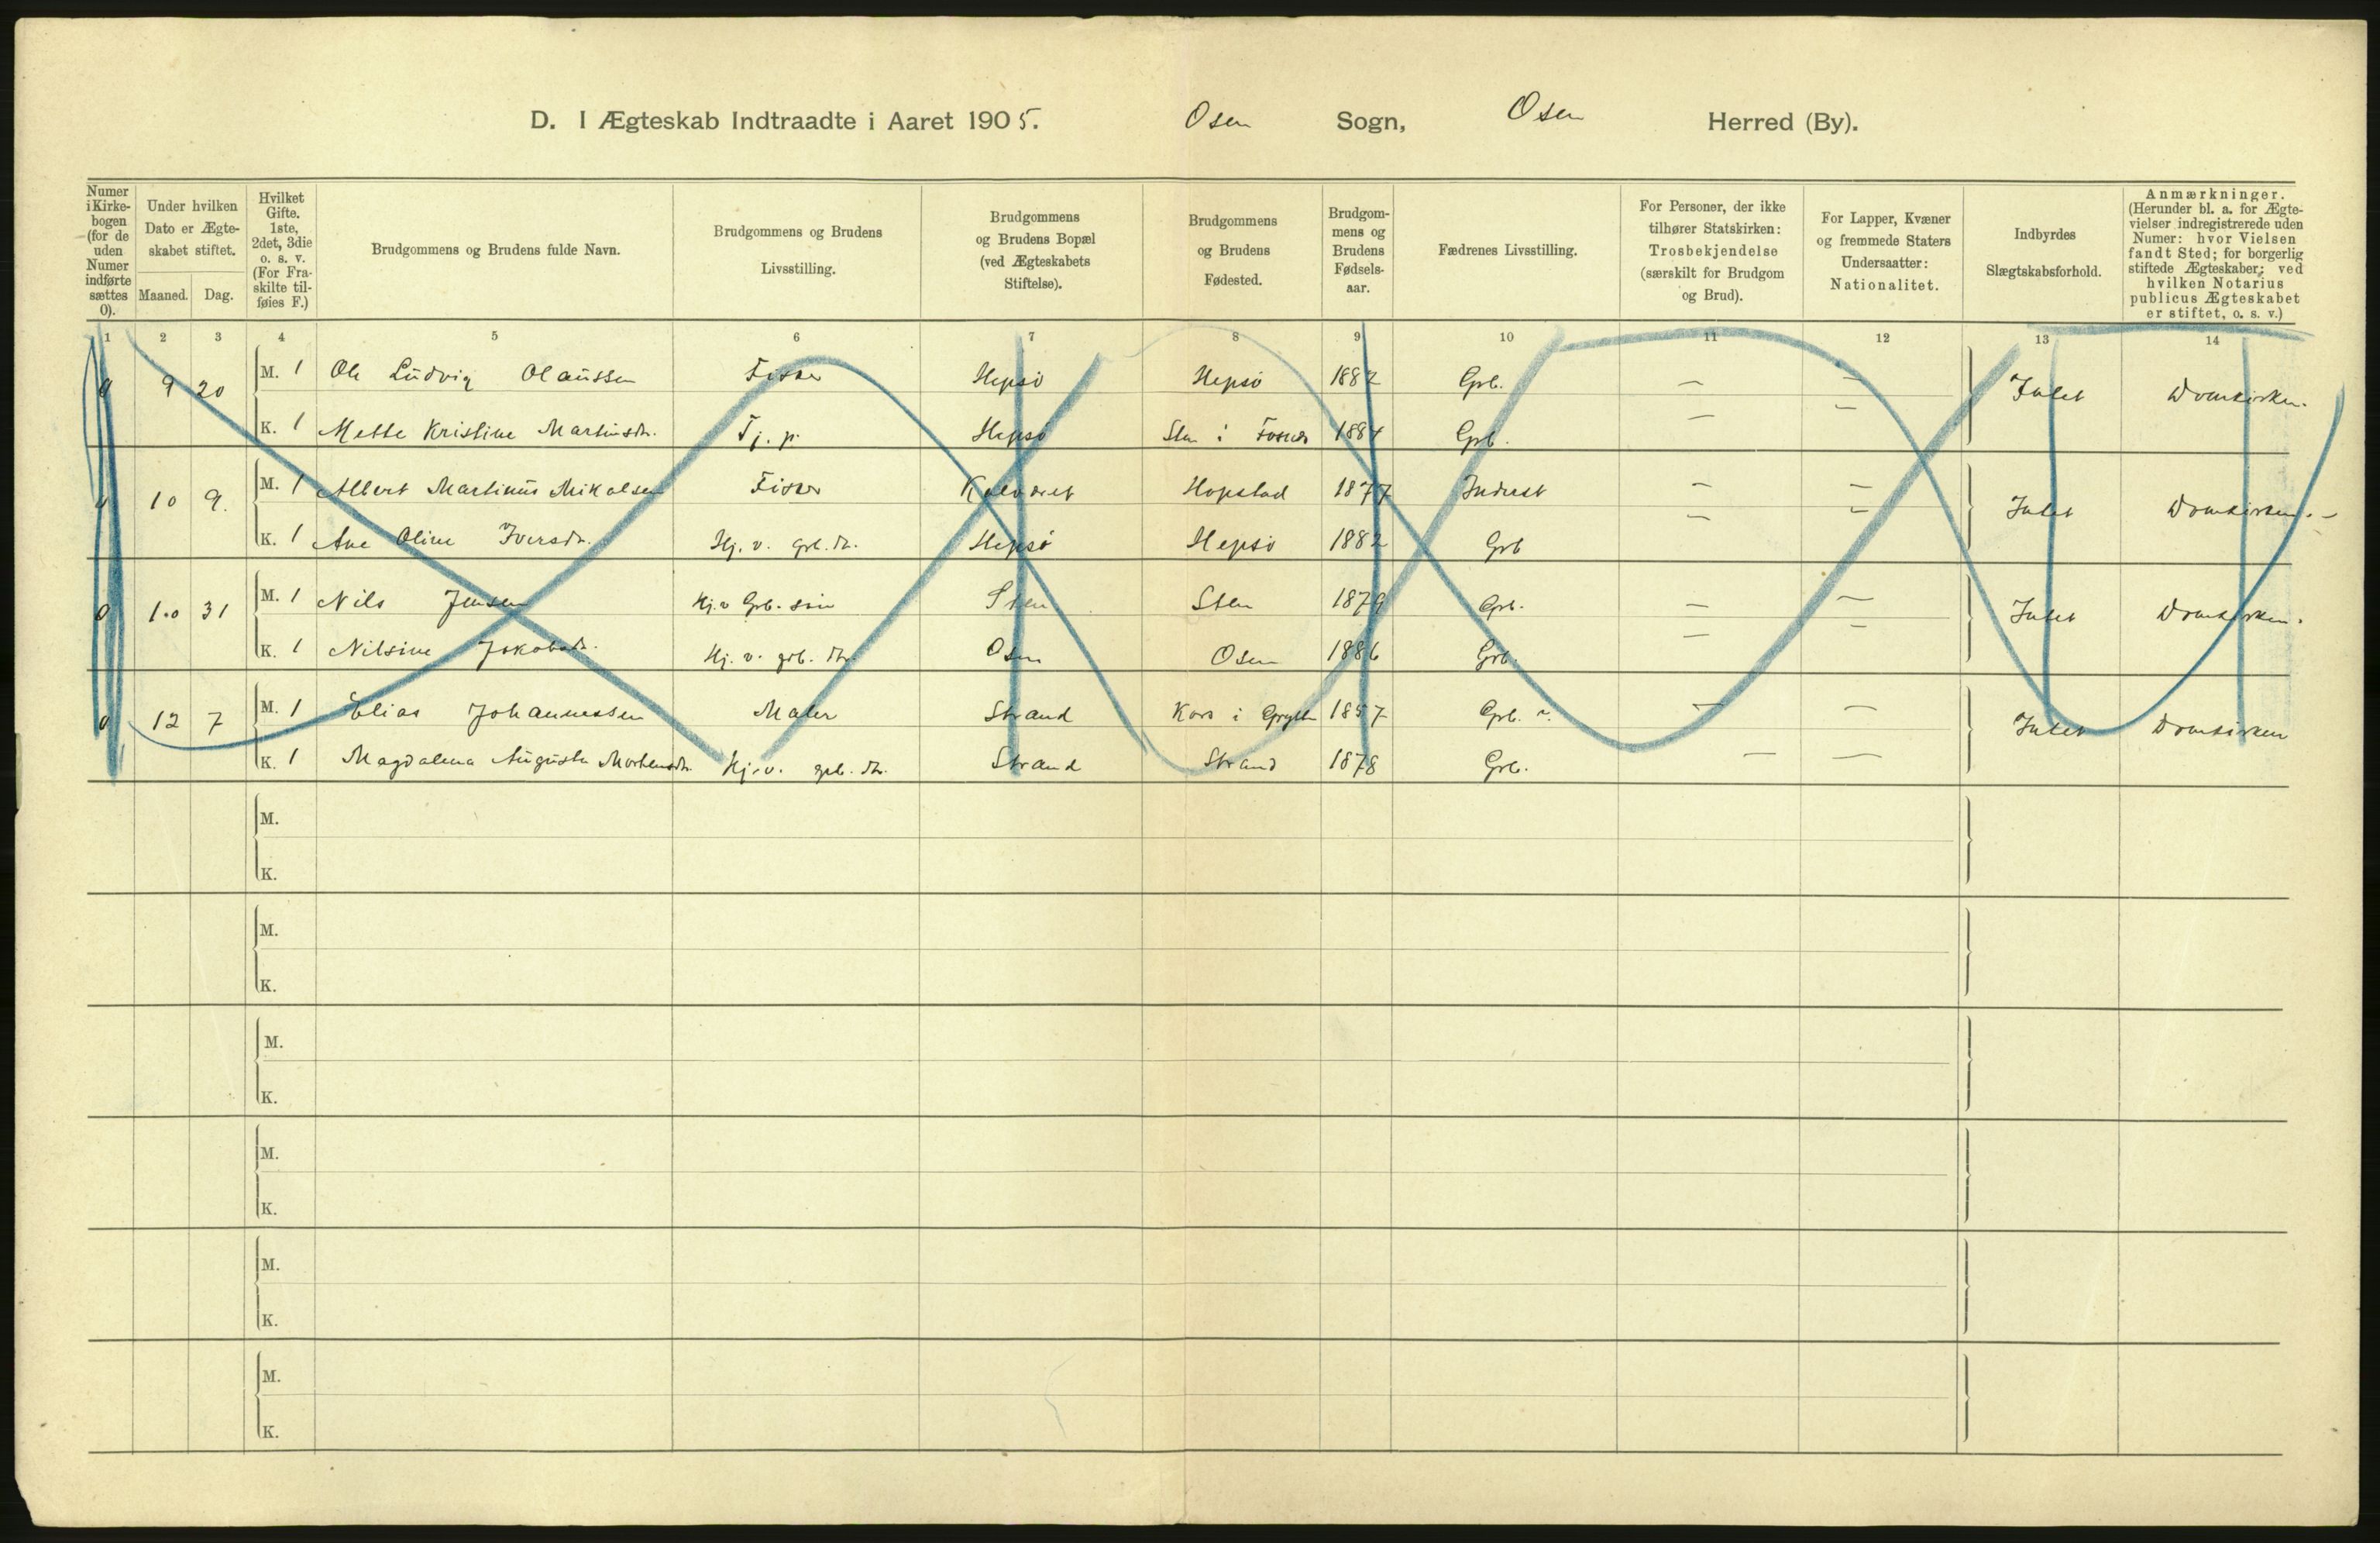 D. I Ægteskab Indtraadte i Aaret 1905. Osen Sogn, Osen Herred (By).
Numer i Kirke-bogen (for de uden Numer indførte sættes 0).
Under hvilken Dato er Ægte-skabet stiftet.
Maaned. Dag.
Hvilket Gifte. 1ste, 2det, 3die o. s. v. (For Fra-skilte til-føies F.)
Brudgommens og Brudens fulde Navn.
Brudgommens og Brudens Livsstilling.
Brudgommens og Brudens Bopæl (ved Ægteskabets Stiftelse).
Brudgommens og Brudens Fødested.
Brudgom-mens og Brudens Fødsels-aar.
Fædrenes Livsstilling.
For Personer, der ikke tilhører Statskirken: Trosbekjendelse (særskilt for Brudgom og Brud).
For Lapper, Kvæner og fremmede Staters Undersaatter: Nationalitet.
Indbyrdes Slægtskabsforhold.
Anmærkninger. (Herunder bl. a. for Ægte-vielser indregistrerede uden Numer: hvor Vielsen fandt Sted; for borgerlig stiftede Ægteskaber: ved hvilken Notarius publicus Ægteskabet er stiftet, o. s. v.)
1 2 3 4 5 6 7 8 9 10 11 12 13 14
0 9 20 M. 1 Ole Ludvig Olaussen Fisker Hepsö Hepsö 1882 Grb. — — Intet Domkirken.
K. 1 Mette Kristine Martinsdr. Tj. p. Hepsö Sten i 1884 Grb. — —
10 9. M. 1 Albert Martinus Mikalsen Fisker Hopstad 1877 Inderst — — Intet Domkirken. —
K. 1 Ane Oline Iversdr. Hj. v. Grb. dr. Hepsö Hepsö 1882 Grb — —
0 10 31 M. 1 Nils Jensen Hj. v Grb. sön Sten Sten 1879 Grb. — — Intet Domkirken.
K. 1 Nilsine Jakobsdr. Hj. v. grb. dr. Osen Osen 1886 Grb. — —
0 12 7 M. 1 Elias Johannessen Maler Strand Kors i Grytten 1857 Grb. — — Intet Domkirken
K. 1 Magdalena Augusta Mortensdr. Hj. v. grb. dr. Strand Strand 1878 Grb. — —
M.
K.
M.
K.
M.
K.
M.
K.
M.
K.
M.
K.